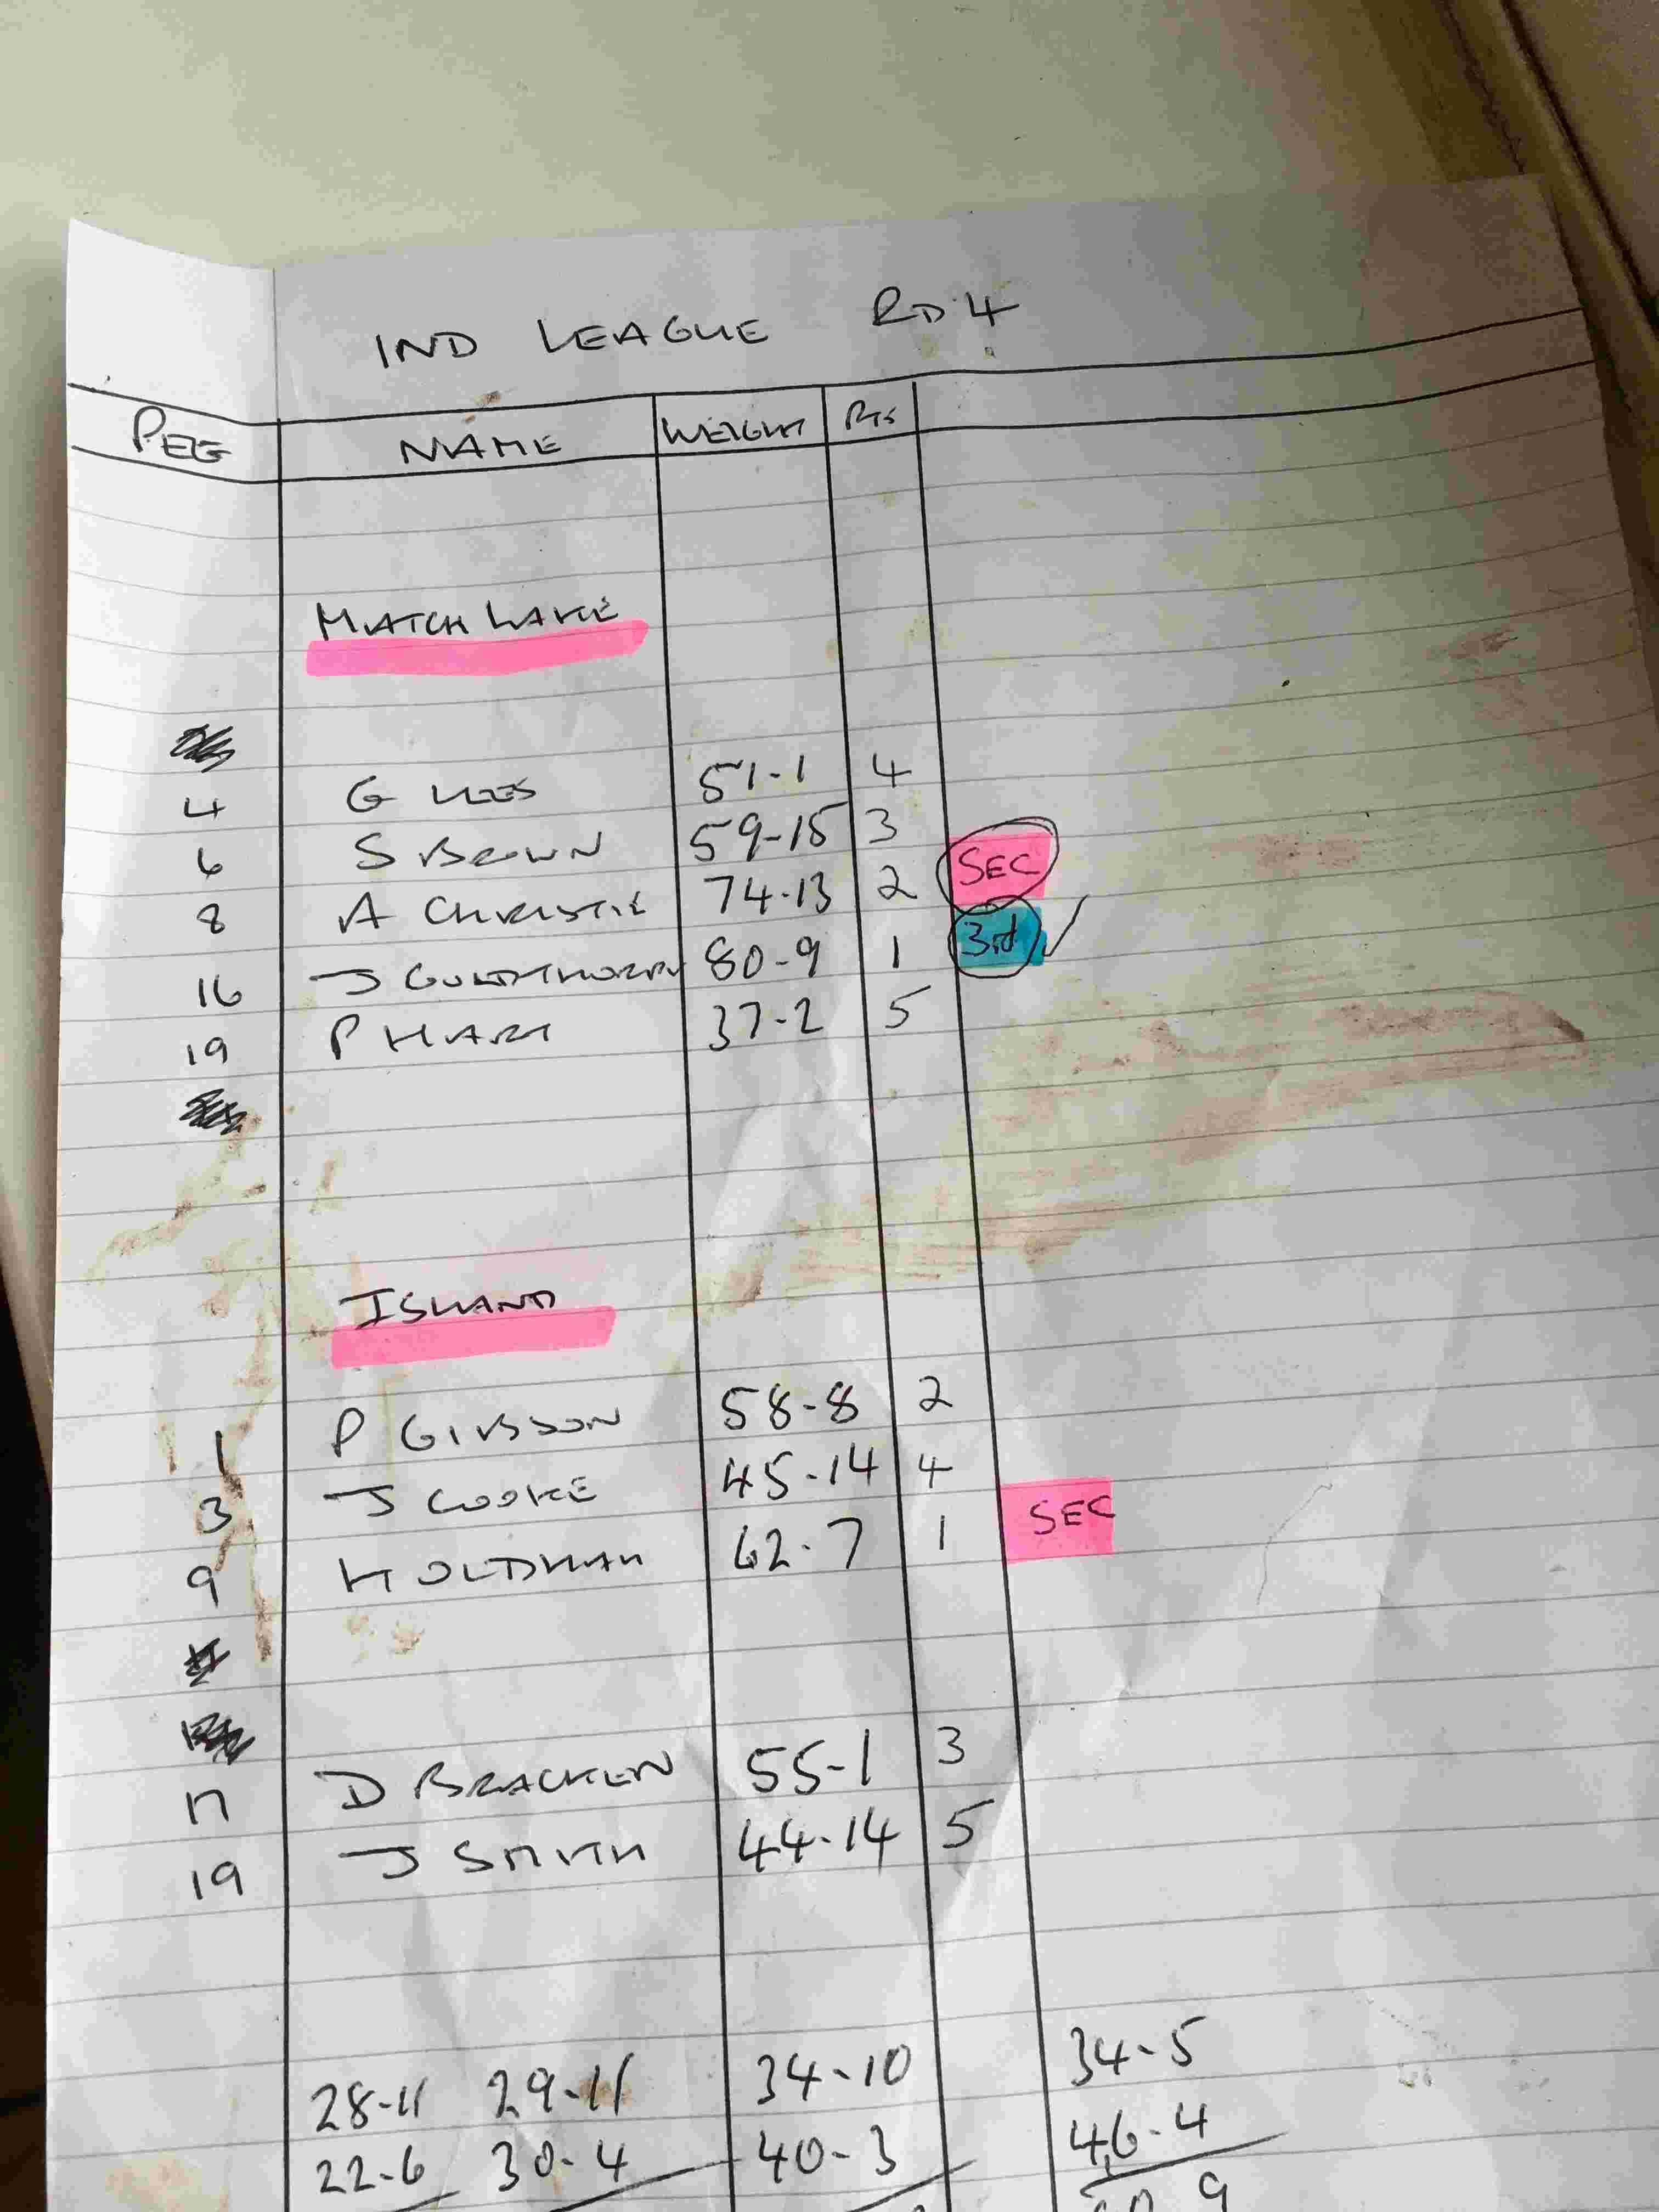 IND LEAGUE RD 4
PEG NAME WEIGHT PTS
MATCH LAKE
4 G LEES 51-1 4
6 S BROWN 59-15 3
8 A CHRISTIE 74-13 2 SEC
16 J GOLDTHORPE 80-9 1 3rd
19 P HART 37-2 5
ISLAND
1 P GIBSON 58-8 2
3 J COOKE 45-14 4
9 H OLDHAM 62-7 1 SEC
17 D BRACKEN 55-1 3
19 J SMITH 44-14 5
28-11 29-11 34-10 34-5
22-6 30-4 40-3 46-4
9